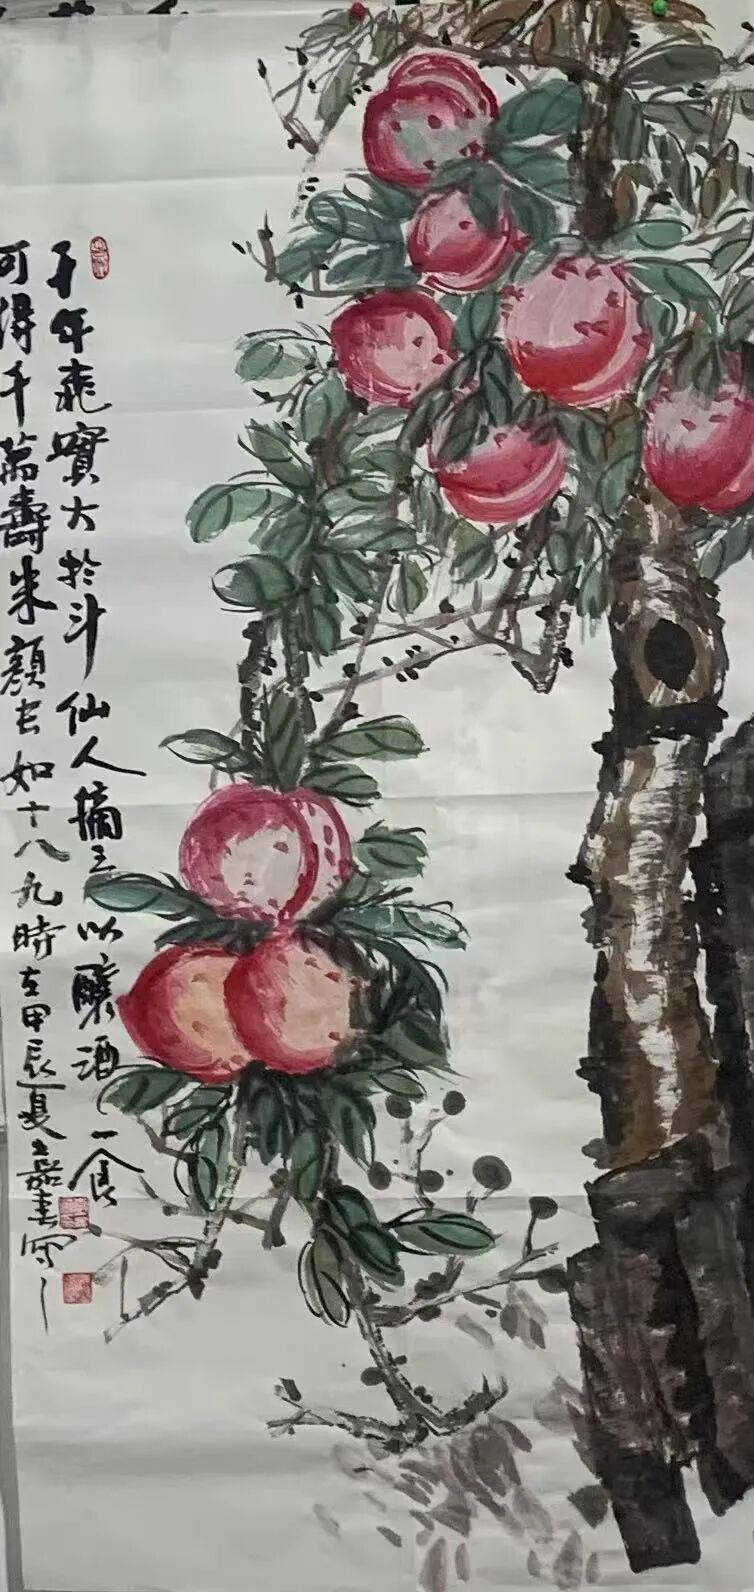 千年桃實大於斗仙人摘之以釀酒一食
可得千萬壽朱顏長如十八九時在甲辰夏嘉春寫